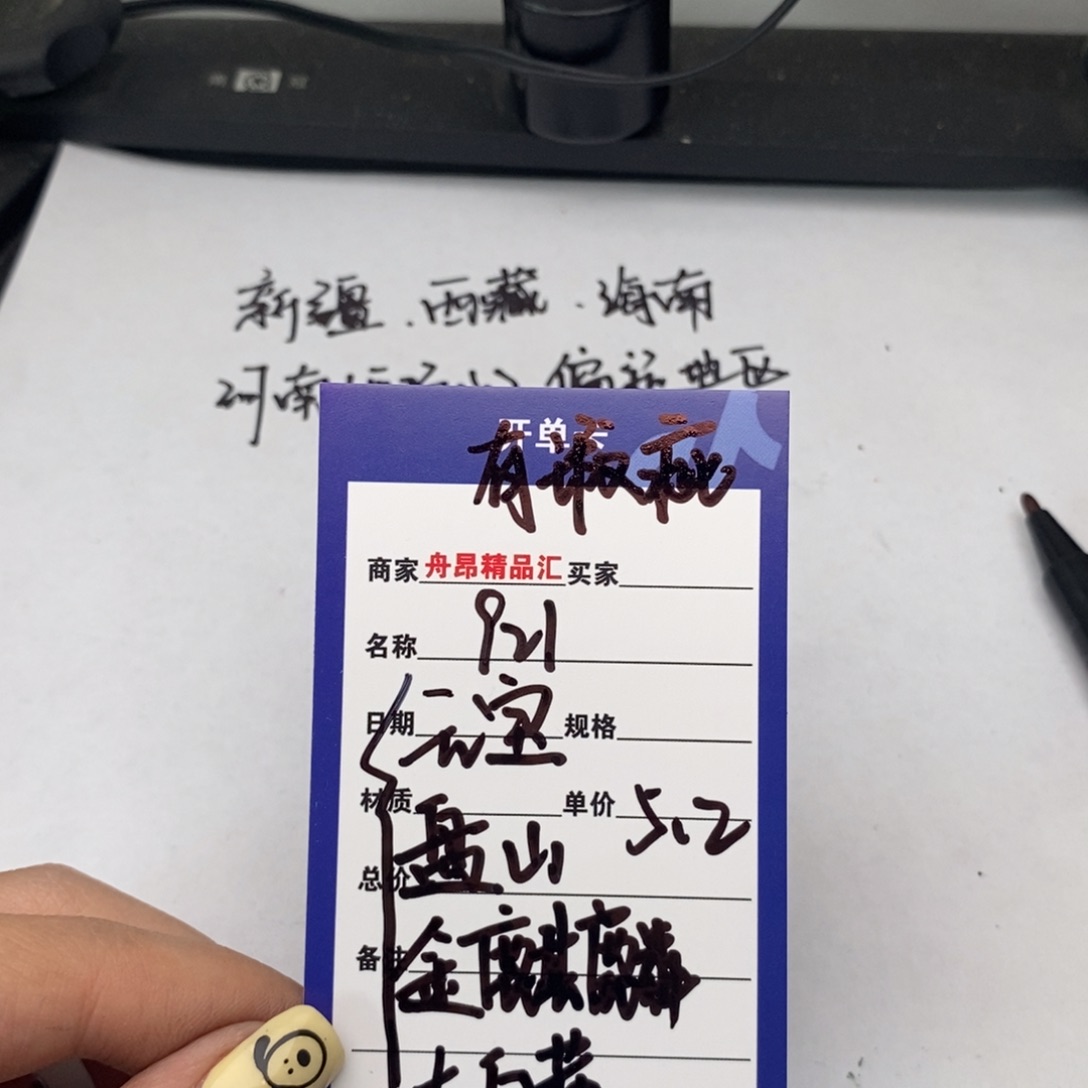 新疆、西藏、海南
河南 偏远地区
开单卡
商家 舟昂精品汇 买家
名称 921
日期 元宝 规格
材质 单价 5.2
盘山
总价
备注 金麒麟